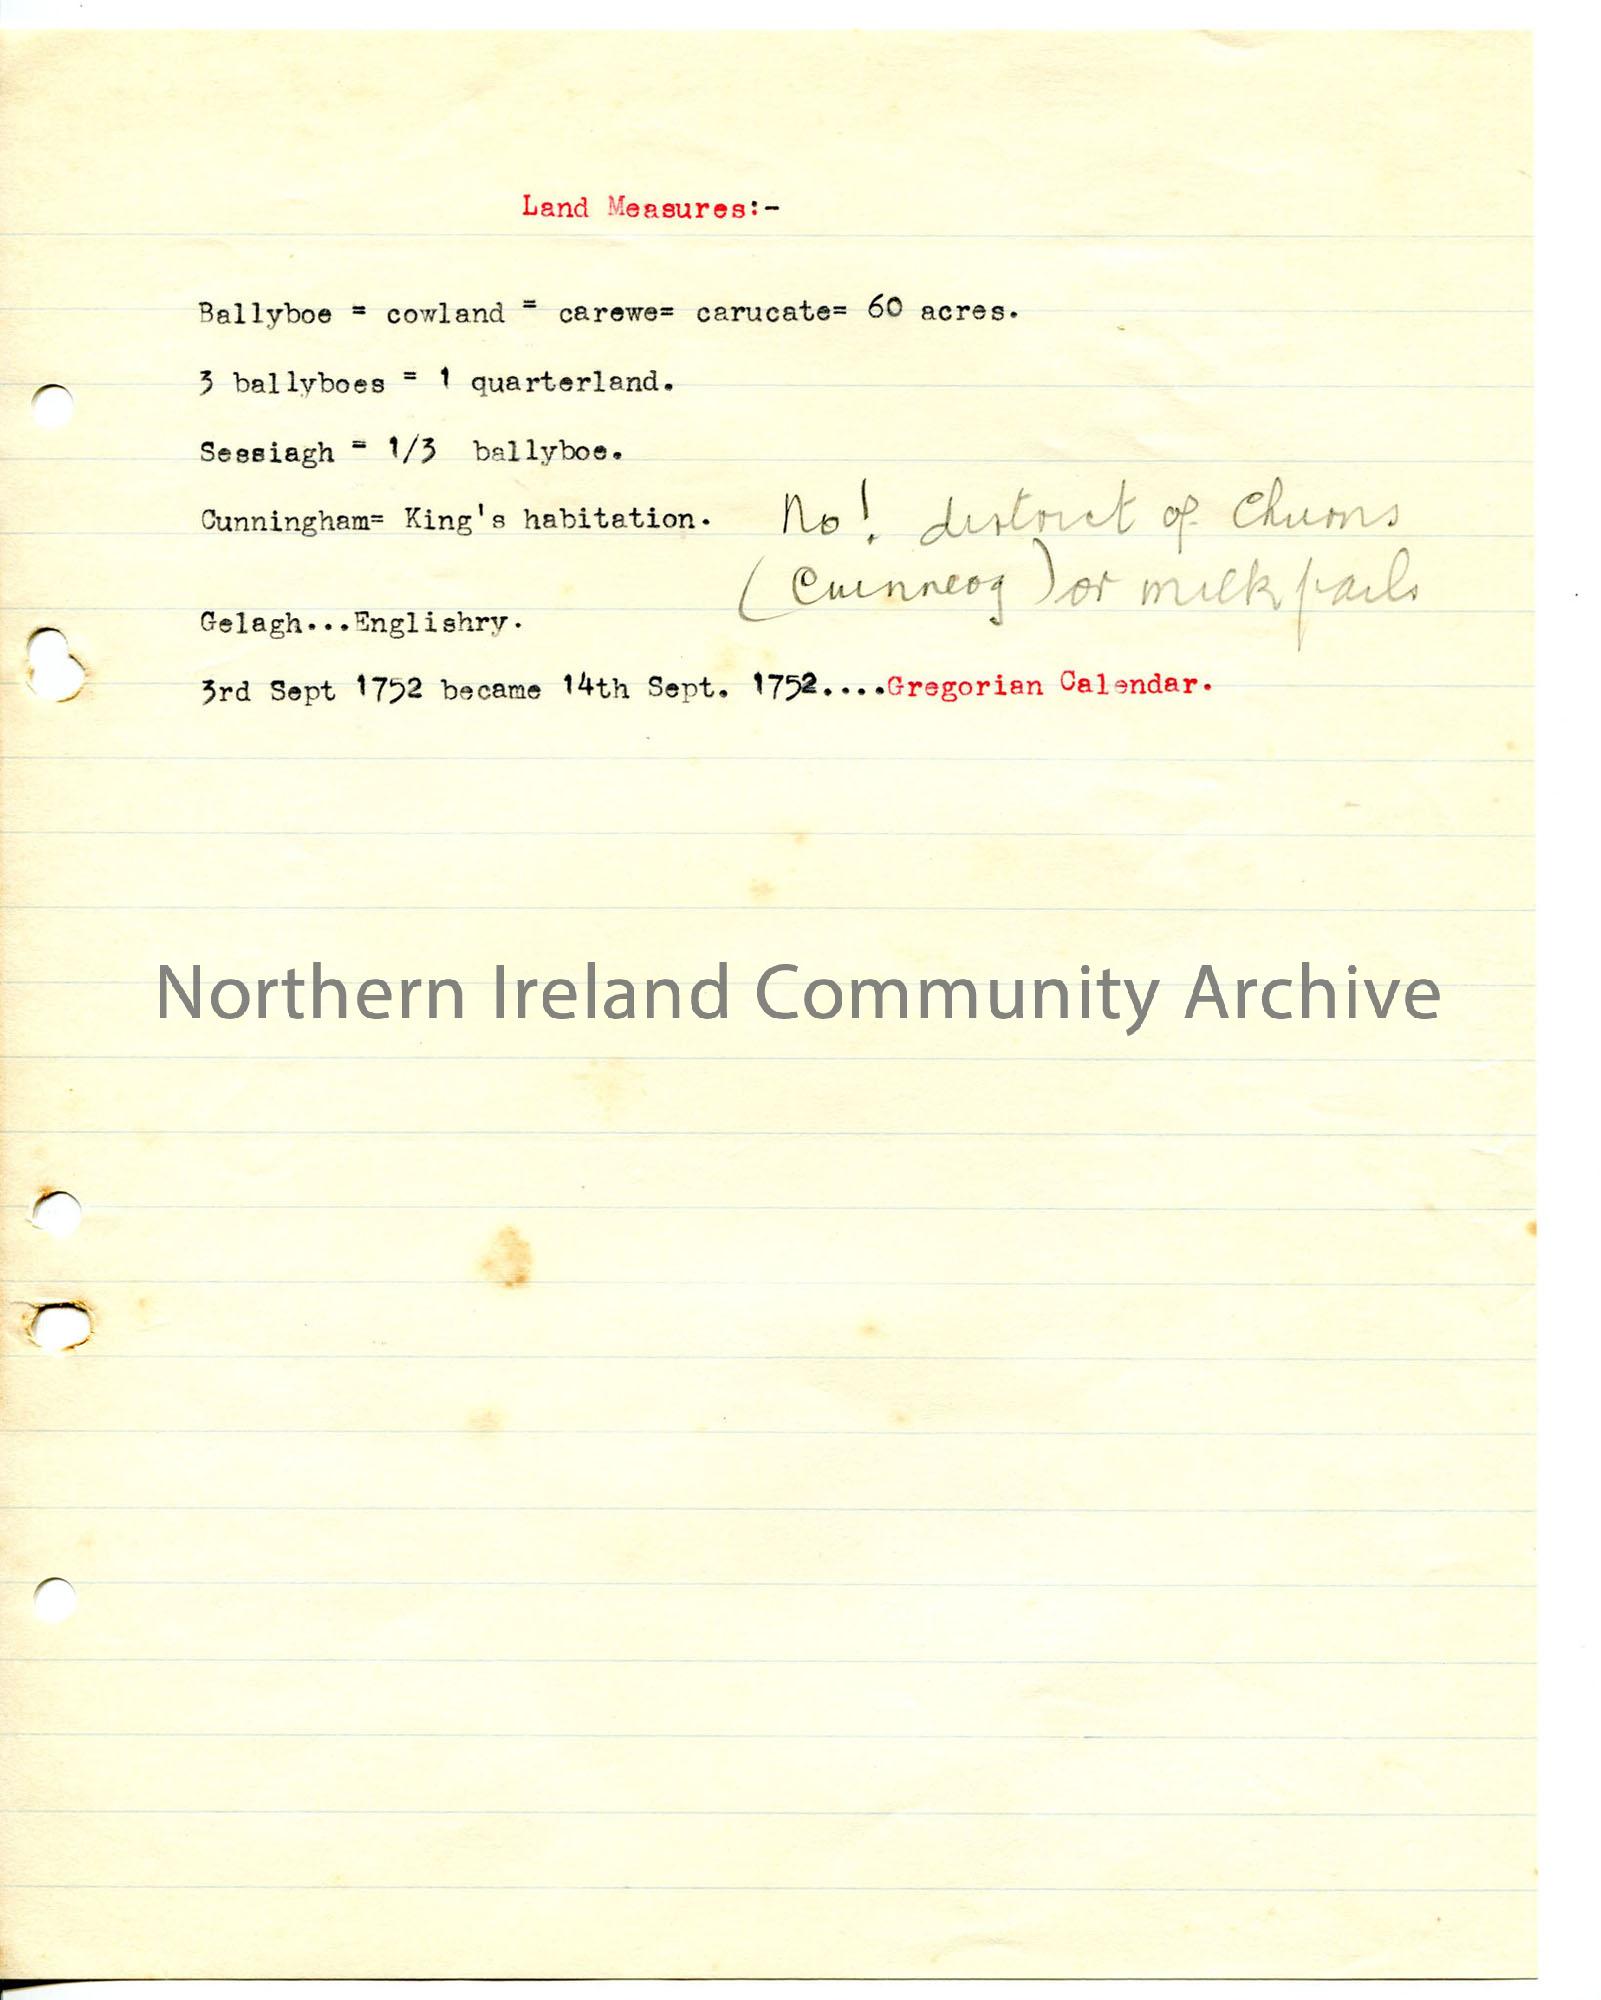 Land Measures:-
Ballyboe = cowland = carewe= carucate= 60 acres.
3 ballyboes = 1 quarterland.
Sessiagh = 1/3 ballyboe.
Cunningham= King's habitation. No! district of Churns
(Cuinneog) or milk pails
Gelagh...Englishry.
3rd Sept 1752 became 14th Sept. 1752....Gregorian Calendar.
Northern Ireland Community Archive